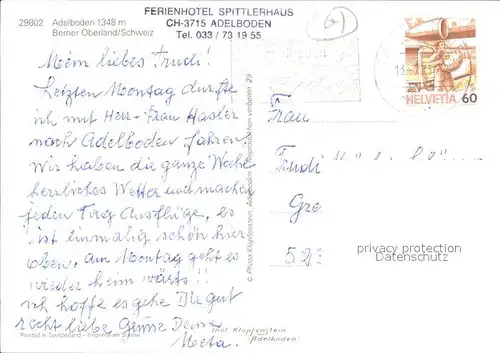 29802 Adelboden 1348 m
Berner Oberland/Schweiz
FERIENHOTEL SPITTLERHAUS
CH-3715 ADELBODEN
Tel. 033 / 73 19 55
HELVETIA 60
Mein liebes Trudi!
Letzten Montag durfte
ich mit Herr + Frau Hasler
nach Adelboden fahren.
Wir haben die ganze Woche
herrliches Wetter und machen
jeden Tag Ausflüge, es
ist einmalig schön hier
oben. Am Montag geht es
wieder heim wärts!!
ich hoffe es gehe Dir gut
recht liebe Grüsse Deine
Meta.
Frau
Trudi
Gre
522
privacy protection
Datenschutz
© Photo Klopfenstein, Adelboden Reproduzieren verboten 29
Printed in Switzerland – Imprimé en Suisse
Inol Klopfenstein
Adelboden